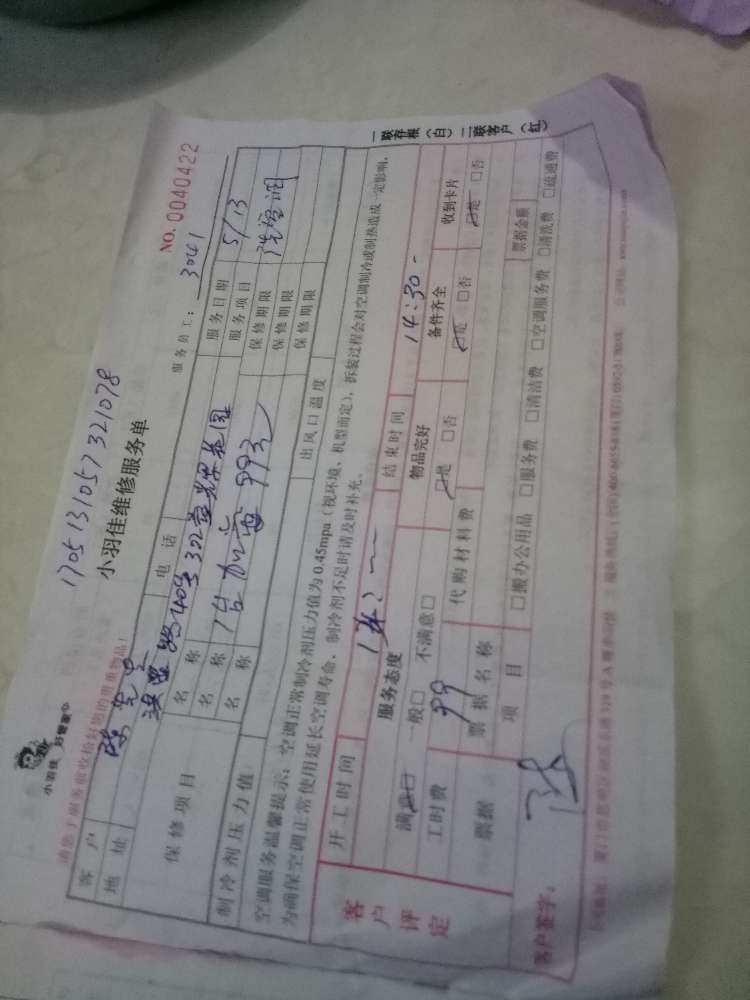 小羽佳 好管家
NO. 0040422
1705131057321078
小羽佳维修服务单
服务员工： 3041
请您于服务前收拾好您的贵重物品！
客户 陈先生 电话 服务日期 5/13
地址 服务项目 洗空调
保修项目 名称 保修期限
名称 1台加氟 99元 保修期限
名称 保修期限
制冷剂压力值 出风口温度
空调服务温馨提示：空调正常制冷剂压力值为0.45mpa（视环境、机型而定），拆装过程会对空调制冷或制热造成一定影响，
为确保空调正常使用延长空调寿命，制冷剂不足时请及时补充。
一联存根（白） 二联客户（红）
客户评定
开工时间 结束时间 14:30
服务态度 物品完好 备件齐全 收到卡片
满意□ 一般□ 不满意□ □是 □否 □是 □否 □是 □否
工时费 99 代购材料费
票据 票据名称 票据金额
项目 □搬办公用品 □服务费 □清洁费 □空调服务费 □清洗费 □疏通费
客户签字：